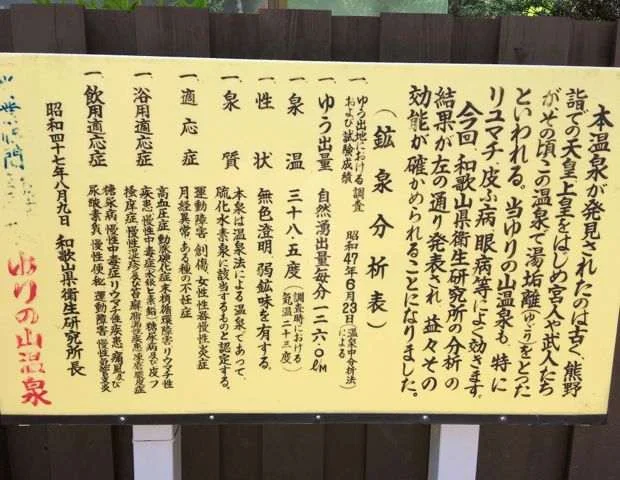 本温泉が発見されたのは古く、熊野
詣での天皇上皇をはじめ宮人や武人たち
がその頃この温泉で湯垢離(ゆごり)をとった
といわれる。当ゆりの山温泉も、特に
リユマチ、皮ふ病、眼病等によく効きます。
今回、和歌山県衛生研究所の分析の
結果が左の通り発表され、益々その
効能が確かめられることになりました。
(鉱泉分析表)
一、ゆう出地における調査および試験成績 昭和47年6月23日(温泉中分析法)による
一、ゆう出量 自然湧出量(毎分)一二六〇ℓM
一、泉温 三十八・五度(調査時における気温二十三度)
一、性状 無色澄明 弱鉱味を有する。
一、泉質 本泉は温泉法による温泉であって、
硫化水素泉に該当するものと認定する。
一、適応症 運動障害 創傷、女性性器慢性炎症
月経異常 ある種の不妊症
一、浴用適応症 高血圧症 動脈硬化症 末梢循環障害 リウマチ性
疾患 慢性中毒症
一、飲用適応症 糖尿病 慢性中毒症 リウマチ性疾患 痛風及び
尿酸素質 慢性便秘 運動障害
昭和四十七年八月九日 和歌山県衛生研究所長
ゆりの山温泉